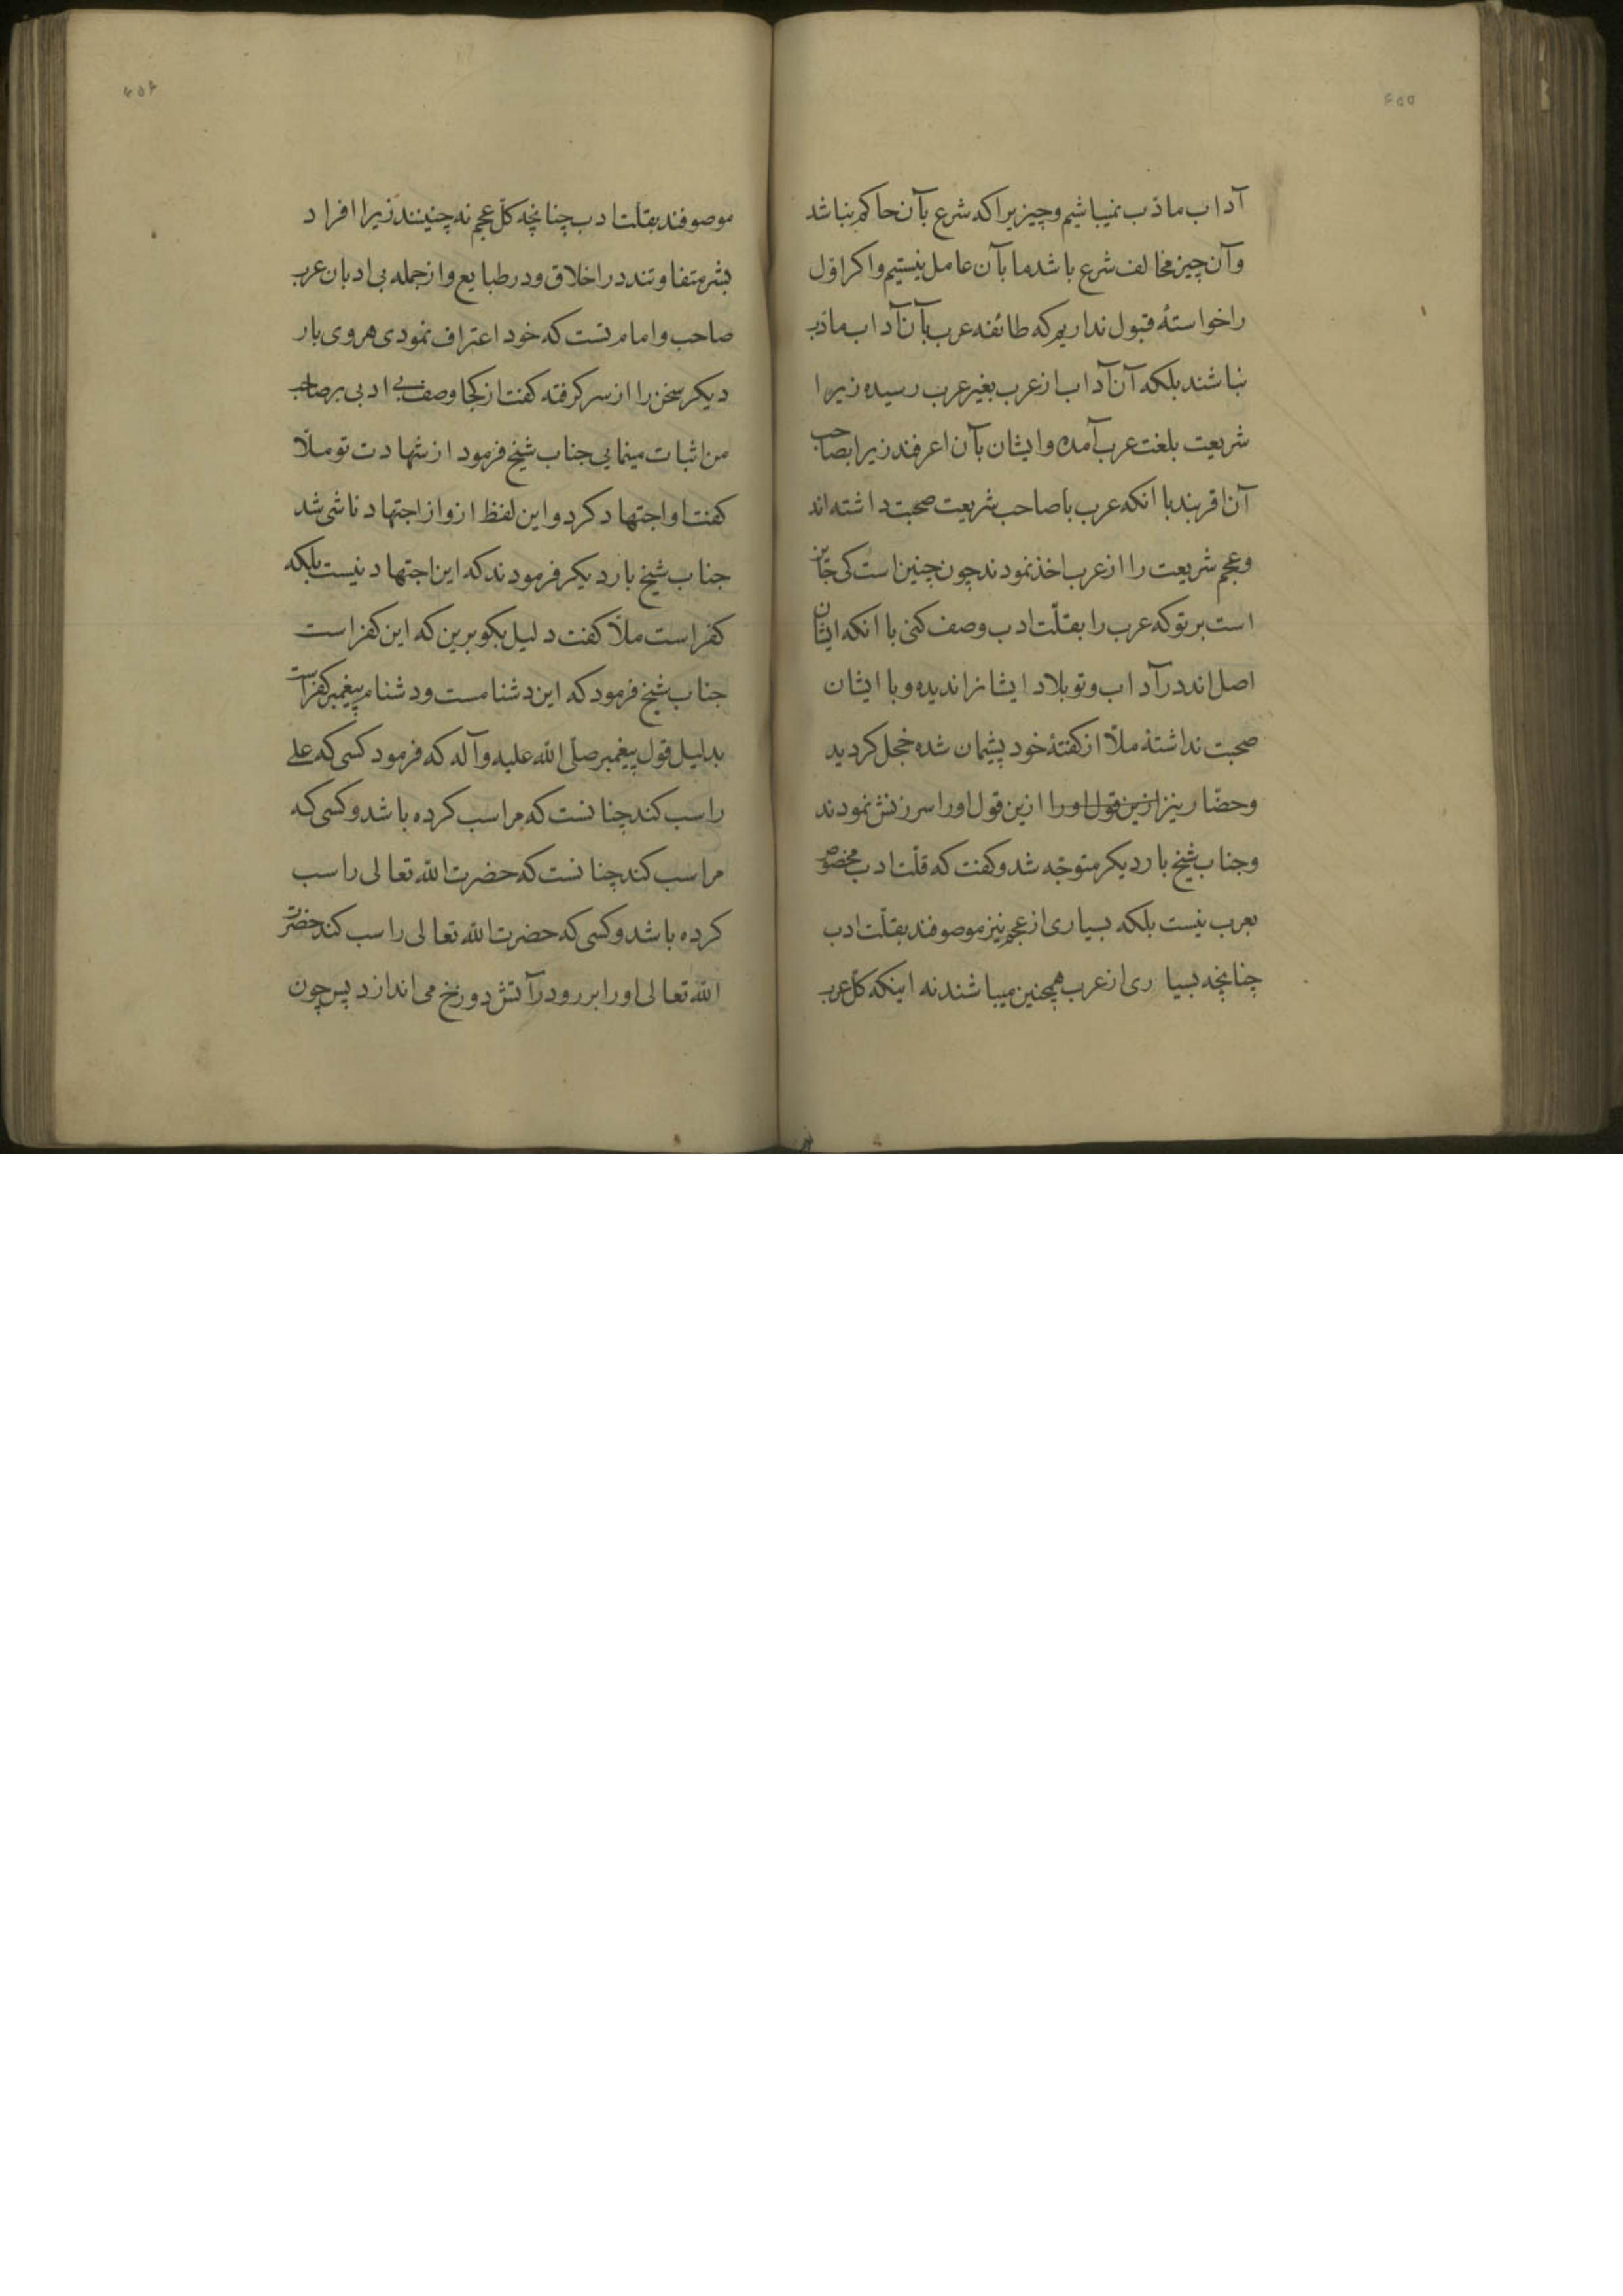 ۴۵۵
آداب ماذب نمیباشیم و چیزیرا که شرع بآن حاکم نباشد
وآن چیز مخالف شرع باشد ما بآن عامل نیستیم و اکر اوّل
را خواستهٔ قبول نداریم که طائفه عرب بآن آداب ماذب
نباشند بلکه آن آداب از عرب بغیر عرب رسیده زیرا
شریعت بلغت عرب آمده و ایشان بآن اعرفند زیرا بصاحب
آن اقربند با انکه عرب با صاحب شریعت صحبت داشته اند
و عجم شریعت را از عرب اخذ نمودند چون چنین است کی جایز
است بر تو که عرب را بقلّت ادب وصف کنی با انکه ایشان
اصل اند در آداب و تو بلاد ایشانرا ندیده و با ایشان
صحبت نداشتهٔ ملّا از کفتهٔ خود پشیمان شده خجل کردید
و حضّار نیز ازین قول او را ازین قول اورا سرزنش نمودند
و جناب شیخ بار دیکر متوجّه شد و کفت که قلّت ادب مخصوص
بعرب نیست بلکه بسیاری از عجم نیز موصوفند بقلّت ادب
چنانچه بسیاری از عرب همچنین میباشند نه اینکه کلّ عرب
۴۵۶
موصوفند بقلت ادب چنانچه کلّ عجم نه چنینند زیرا افراد
بشر متفاوتند در اخلاق و در طبایع و از جمله بی ادبان عرب
صاحب و امام تست که خود اعتراف نمودی هروی بار
دیکر سخن را از سر کرفته کفت از کجا وصف بی ادبی بر صاحب
من اثبات مینمایی جناب شیخ فرمود از شهادت تو ملّا
کفت او اجتهاد کرد و این لفظ ازو از اجتهاد ناشی شد
جناب شیخ بار دیکر فرمودند که این اجتهاد نیست بلکه
کفر است ملّا کفت دلیل بکو برین که این کفر است
جناب شیخ فرمود که این دشنامست و دشنام پیغمبر کفر است
بدلیل قول پیغمبر صلّی اللّه علیه و آله که فرمود کسی که علی
را سب کند چنانست که مرا سب کرده باشد و کسی که
مرا سب کند چنانست که حضرت اللّه تعالی را سب
کرده باشد و کسی که حضرت اللّه تعالی را سب کند حضرت
اللّه تعالی او را بر رو در آتش دوزخ می اندازد پس چون